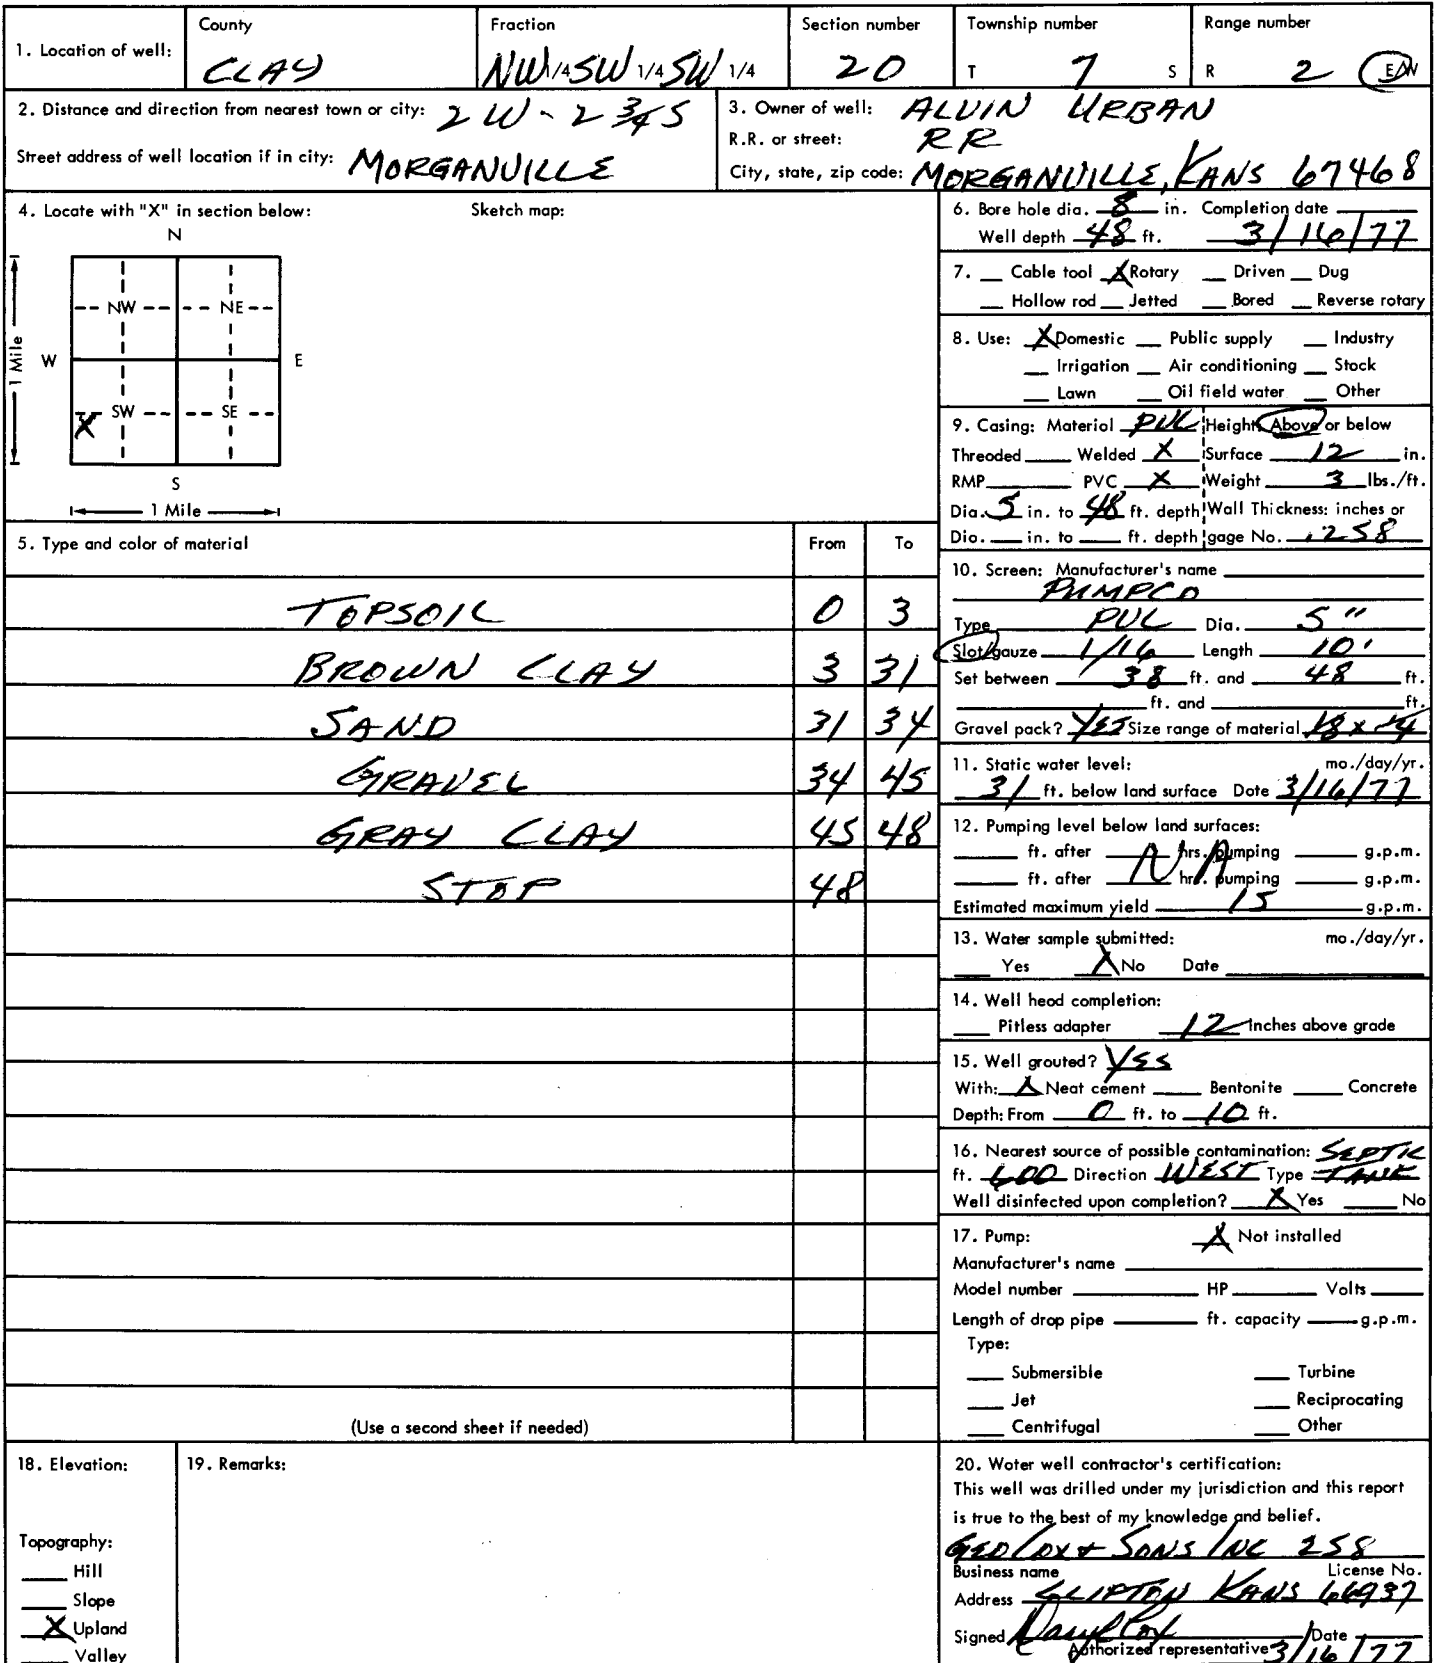 1. Location of well: County CLAY Fraction NW 1/4 SW 1/4 SW 1/4 Section number 20 Township number T 7 S Range number R 2 E/W
2. Distance and direction from nearest town or city: 2 W - 2 3/4 S
Street address of well location if in city: MORGANVILLE
3. Owner of well: ALVIN URBAN
R.R. or street: RR
City, state, zip code: MORGANVILLE, KANS 67468
4. Locate with "X" in section below: Sketch map:
N
NW NE
W E
1 Mile
X SW SE
S
1 Mile
5. Type and color of material From To
TOPSOIL 0 3
BROWN CLAY 3 31
SAND 31 34
GRAVEL 34 45
GRAY CLAY 45 48
STOP 48
(Use a second sheet if needed)
6. Bore hole dia. 8 in. Completion date
Well depth 48 ft. 3/16/77
7. Cable tool X Rotary Driven Dug
Hollow rod Jetted Bored Reverse rotary
8. Use: X Domestic Public supply Industry
Irrigation Air conditioning Stock
Lawn Oil field water Other
9. Casing: Material PVC Height: Above or below
Threaded Welded X Surface 12 in.
RMP PVC X Weight 3 lbs./ft.
Dia. 5 in. to 48 ft. depth Wall Thickness: inches or
Dia. in. to ft. depth gage No. .258
10. Screen: Manufacturer's name
PUMPCO
Type PVC Dia. 5"
Slot/gauze 1/16 Length 10'
Set between 38 ft. and 48 ft.
ft. and ft.
Gravel pack? YES Size range of material
11. Static water level: mo./day/yr.
31 ft. below land surface Date 3/16/77
12. Pumping level below land surfaces:
ft. after NA hrs. pumping g.p.m.
ft. after hrs. pumping g.p.m.
Estimated maximum yield 15 g.p.m.
13. Water sample submitted: mo./day/yr.
Yes X No Date
14. Well head completion:
Pitless adapter 12 Inches above grade
15. Well grouted? YES
With: X Neat cement Bentonite Concrete
Depth: From 0 ft. to 10 ft.
16. Nearest source of possible contamination: SEPTIC
ft. 600 Direction WEST Type TANK
Well disinfected upon completion? X Yes No
17. Pump: X Not installed
Manufacturer's name
Model number HP Volts
Length of drop pipe ft. capacity g.p.m.
Type:
Submersible Turbine
Jet Reciprocating
Centrifugal Other
18. Elevation:
Topography:
Hill
Slope
X Upland
Valley
19. Remarks:
20. Water well contractor's certification:
This well was drilled under my jurisdiction and this report
is true to the best of my knowledge and belief.
GEO COX & SONS INC 258
Business name License No.
Address CLIFTON KANS 66937
Signed Daryl Cox Date
Authorized representative 3/16/77